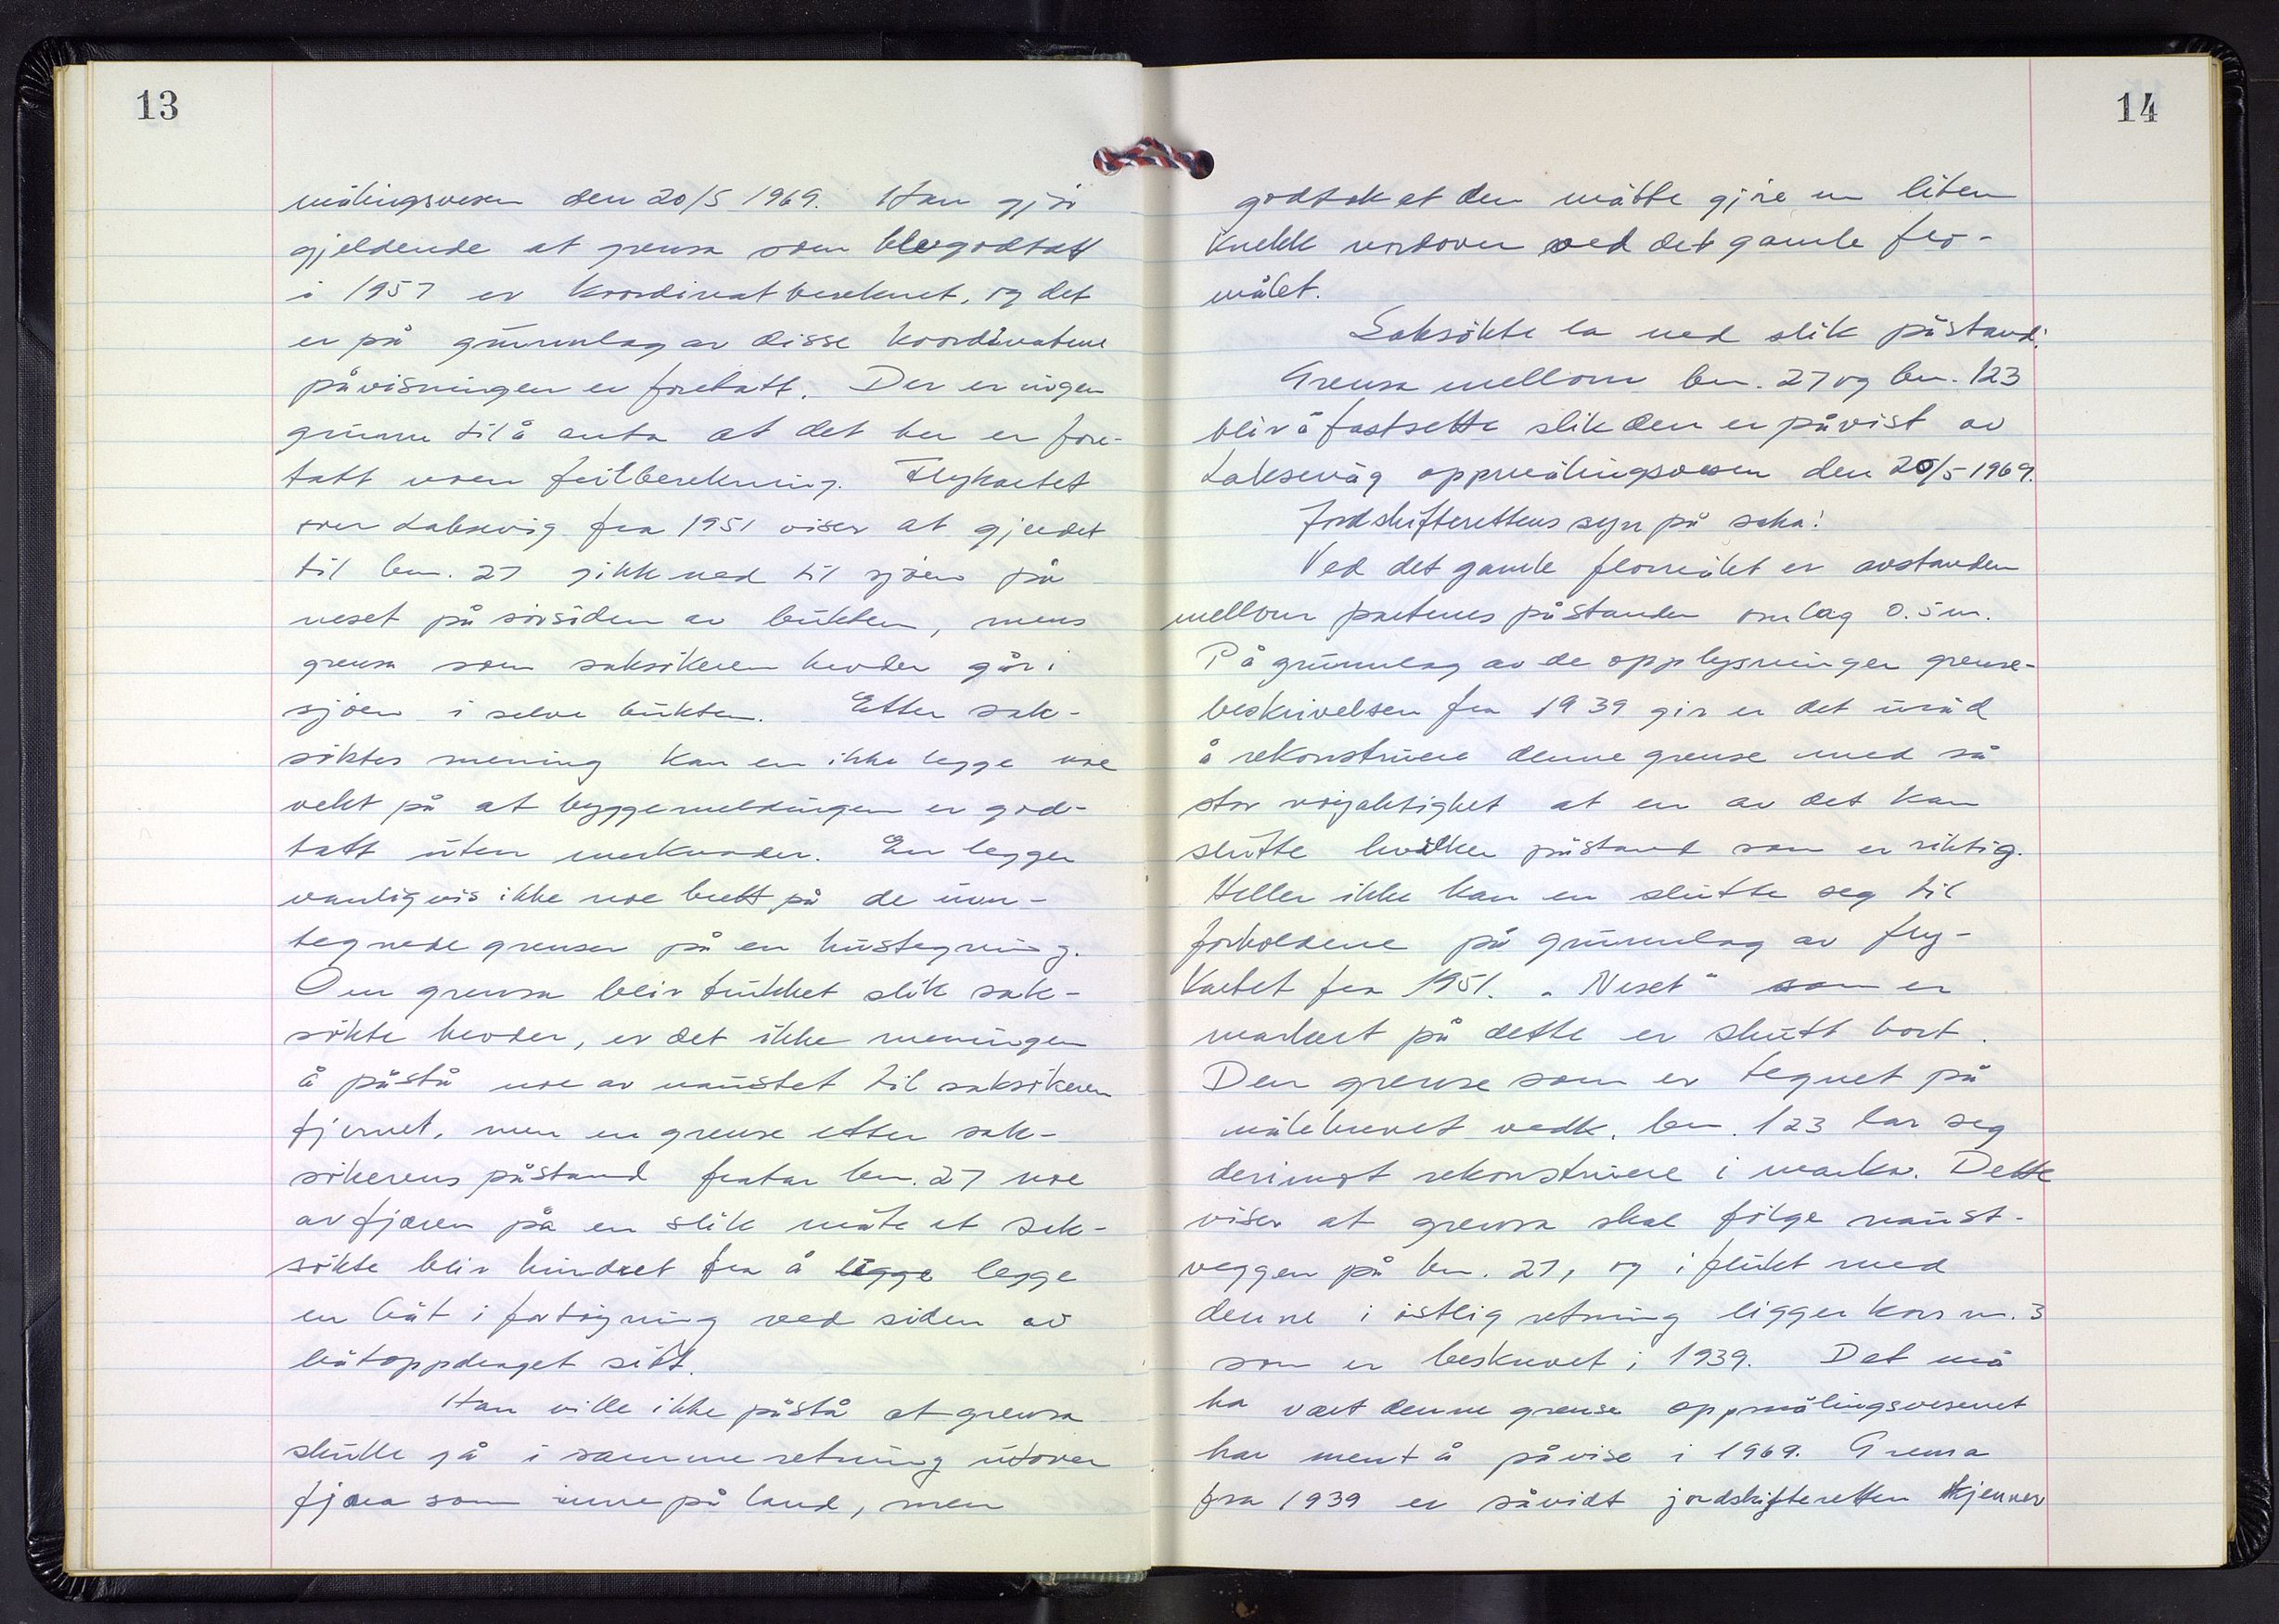 13
målingsvesen den 20/5 1969. Han gjör
gjeldende at grensa som ble godtatt
i 1957 er koordinatbereknet, og det
er på grunnlag av disse koordinatene
påvisningen er foretatt. Der er ingen
grunn til å anta at det her er fore-
tatt noen feilberekning. Flykartet
over Laksevåg fra 1951 viser at gjerdet
til bn. 27 gikk ned til sjöen på
neset på sörsiden av bukten, mens
grensa som saksökeren hevder går i
sjöen i selve bukten. Etter sak-
söktes mening kan en ikke legge noe
vekt på at byggemeldingen er god-
tatt uten merknader. En legger
vanligvis ikke noe brett på de inn-
tegnede grenser på en hustegning.
Om grensa blir trukket slik sak-
sökte hevder, er det ikke meningen
å påstå noe av naustet til saksökeren
fjernet, men en grense etter sak-
sökerens påstand fratar bn. 27 noe
av fjæren på en slik måte at sak-
sökte blir hindret fra å ligge legge
en båt i fortöyning ved siden av
båtoppdraget sitt.
Han ville ikke påstå at grensa
skulle gå i samme retning utover
fjæra som inne på land, men
14
godtok at den måtte gjöre en liten
knekk nordover ved det gamle flo-
målet.
Saksökte la ned slik påstand:
Grensa mellom bn. 27 og bn. 123
blir å fastsette slik den er påvist av
Laksevåg oppmålingsvesen den 20/5 1969.
Jordskifterettens syn på saka:
Ved det gamle flomålet er avstanden
mellom partenes påstander omlag 0.5 m.
På grunnlag av de opplysninger grense-
beskrivelsen fra 1939 gir er det uråd
å rekonstruere denne grense med så
stor nöyaktighet at en av det kan
slutte hvilken påstand som er riktig.
Heller ikke kan en slutte seg til
forholdene på grunnlag av fly-
kartet fra 1951. "Neset" som er
markert på dette er skutt bort.
Den grense som er tegnet på
målebrevet vedk. bn. 123 lar seg
derimot rekonstruere i marka. Dette
viser at grensa skal fölge naust-
veggen på bn. 27, og i flukt med
denne i östlig retning ligger kors nr. 3
som er beskrevet i 1939. Det må
ha vært denne grense oppmålingsvesenet
har ment å påvise i 1969. Grensa
fra 1939 er såvidt jordskifteretten kjenner